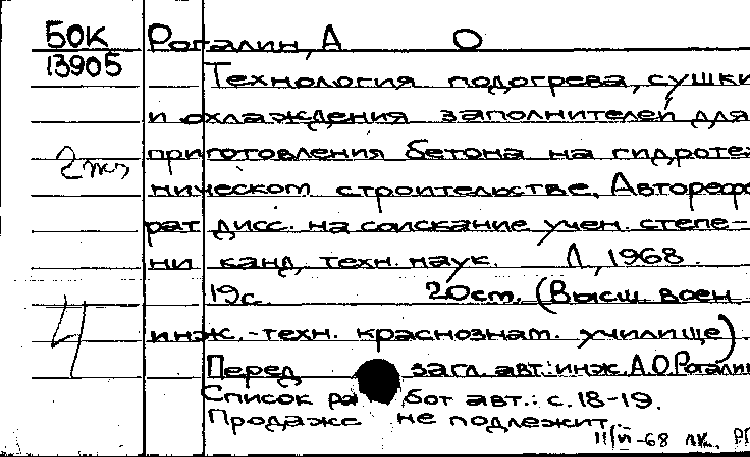 БОК Рогалин, А О
13905 Технология подогрева, сушки
и охлаждения заполнителей для
2 экз приготовления бетона на гидроте
ническом строительстве. Авторефе
рат дисс. на соискание учен. степе-
ни канд, техн. наук. Л., 1968.
19с. 20см. (Высш. воен.
4 инж.-техн. краснознам. училище)
Перед загл. авт.: инж. А.О. Рогалин
Список ра бот авт.: с. 18-19.
Продаже не подлежит.
-68 лк.